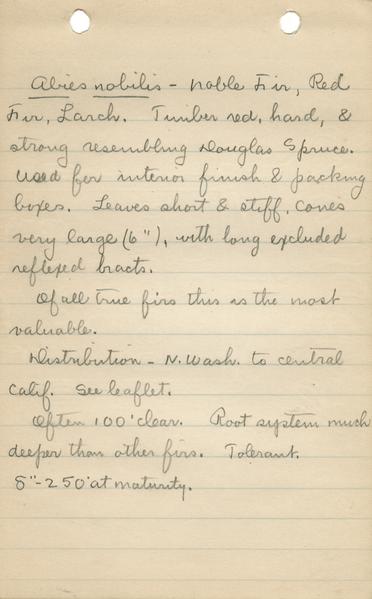 Abies nobilis - Noble Fir, Red
Fir, Larch. Timber red, hard, &
strong resembling Douglas Spruce.
Used for interior finish & packing
boxes. Leaves short & stiff, cones
very large (6"), with long excluded
reflexed bracts.
Of all true firs this is the most
valuable.
Distribution - N. Wash. to central
Calif. See leaflet.
Often 100' clear. Root system much
deeper than other firs. Tolerant.
8"-250' at maturity.